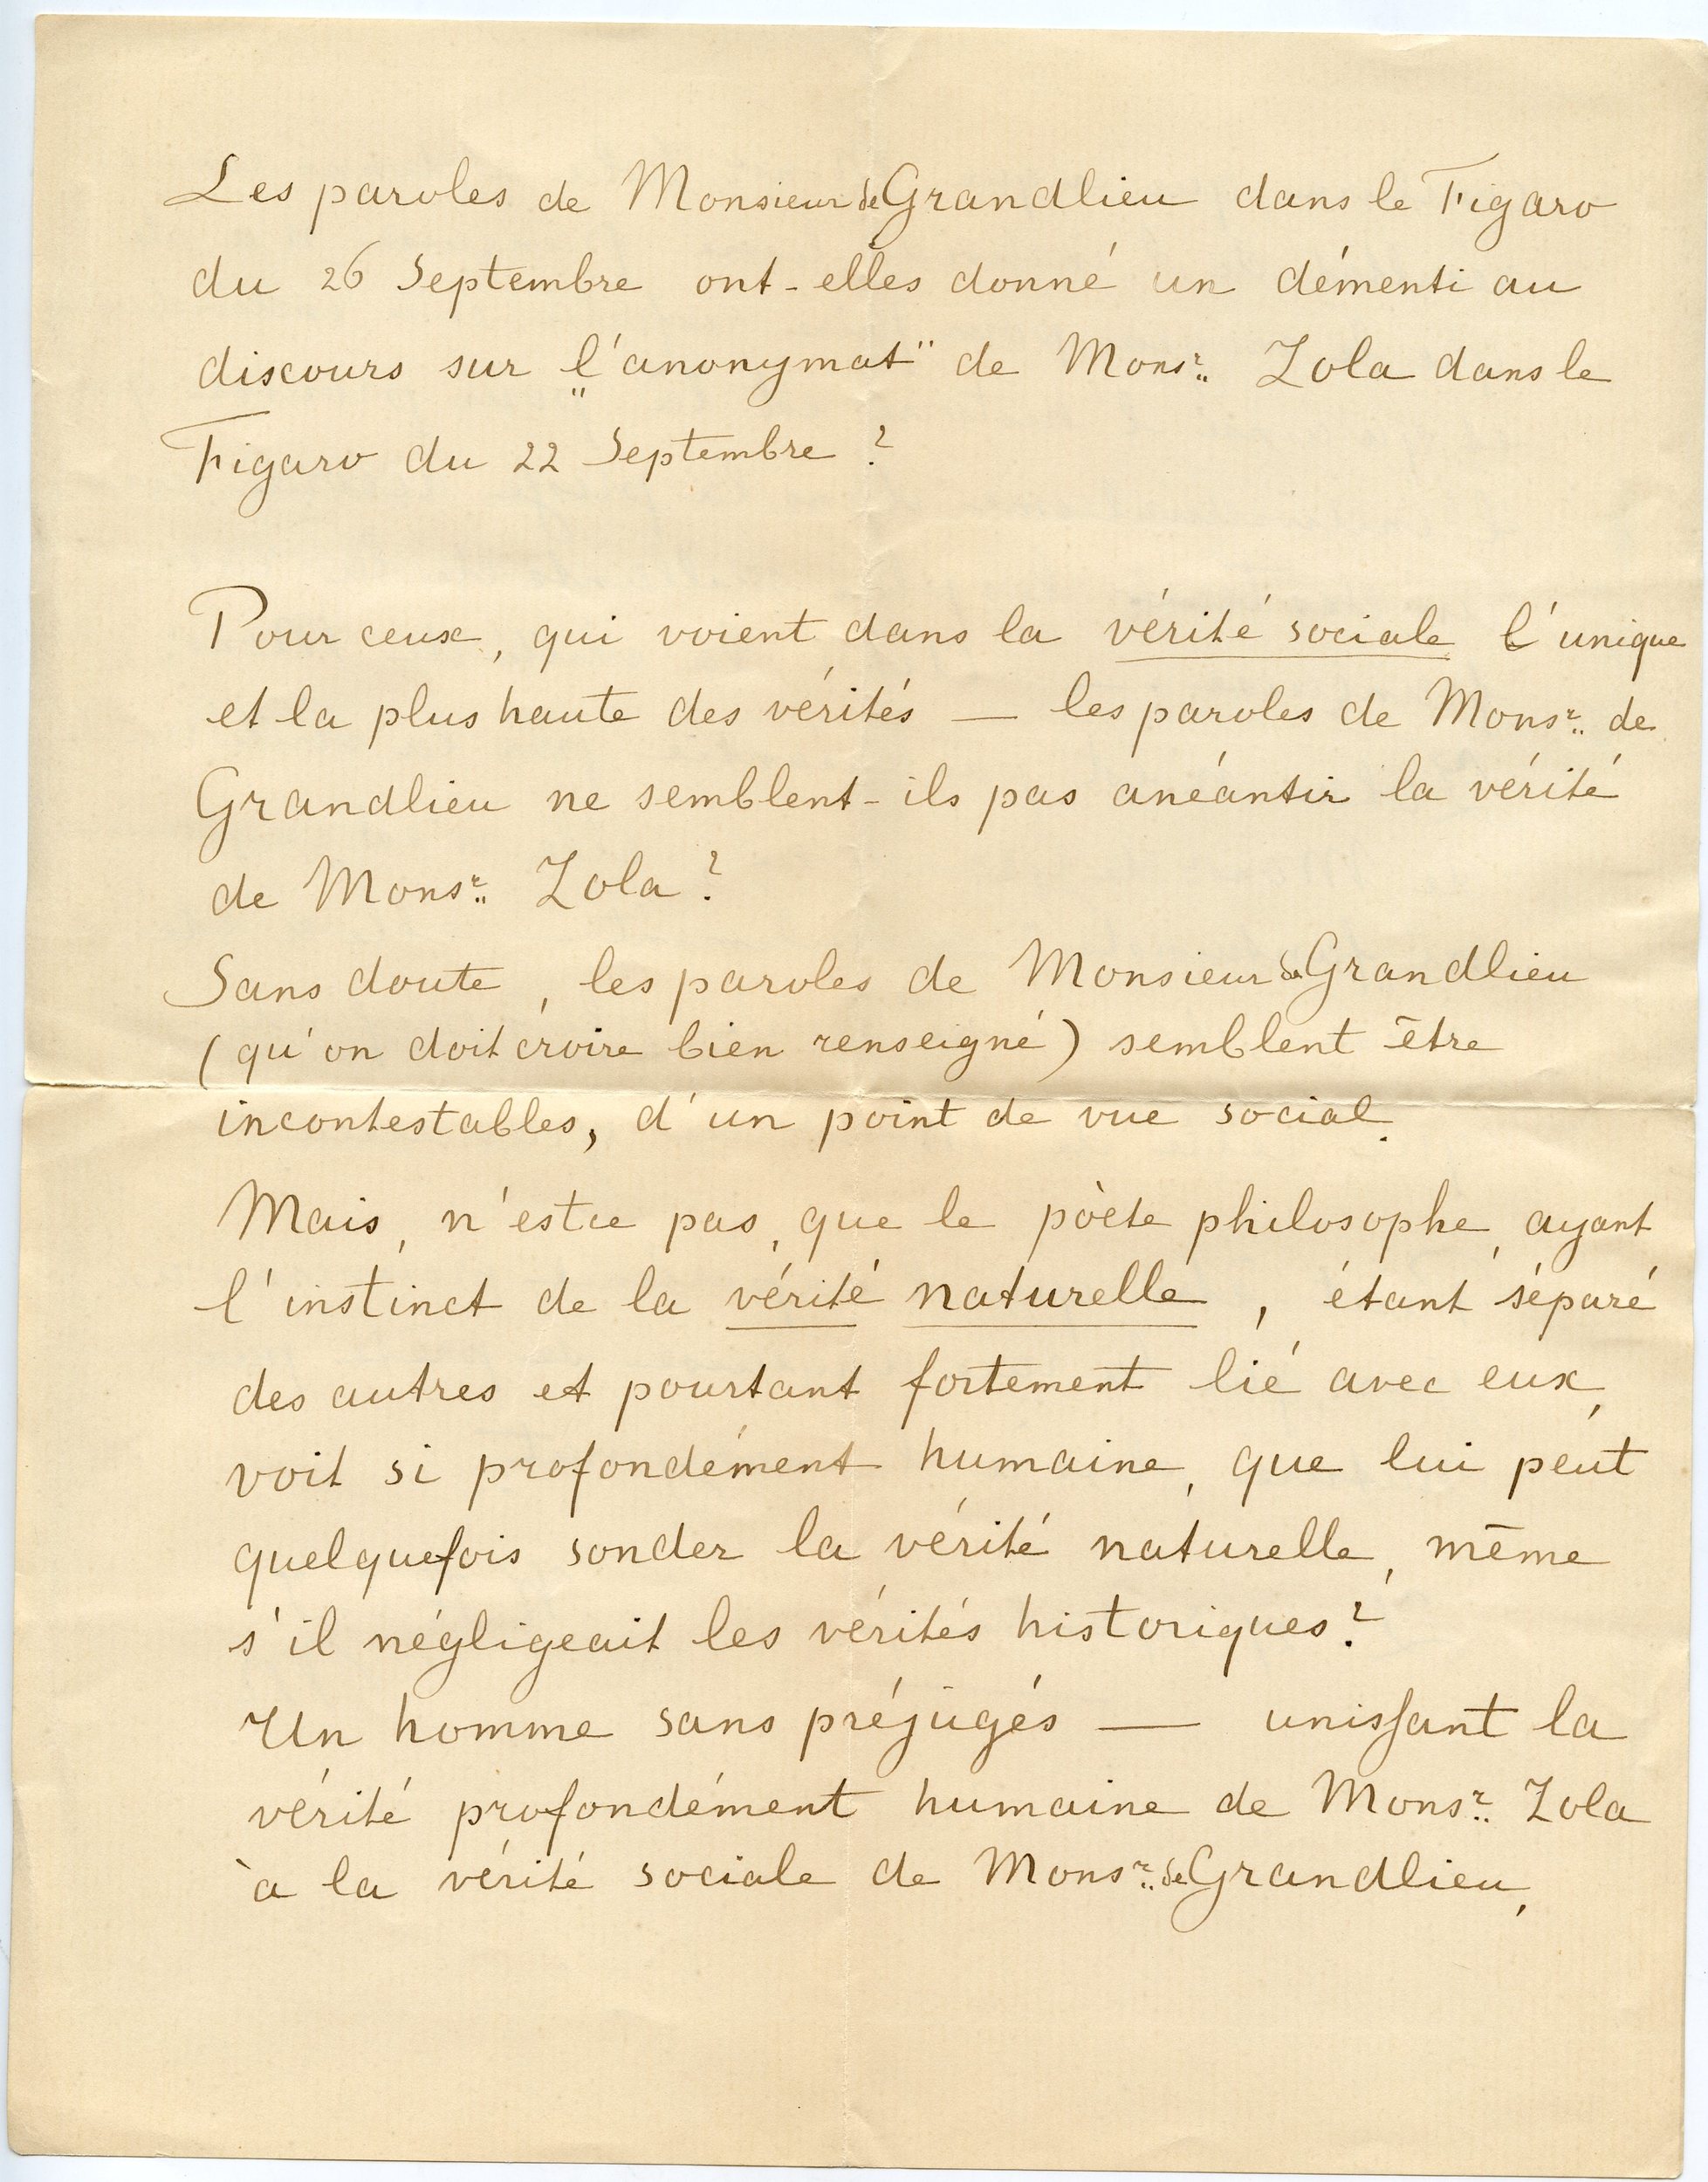 Les paroles de Monsieur de Grandlieu dans le Figaro
du 26 Septembre ont-elles donné un démenti au
discours sur „l'anonymat" de Monsr. Zola dans le
Figaro du 22 Septembre ?
Pour ceux, qui voient dans la vérité sociale l'unique
et la plus haute des vérités — les paroles de Monsr. de
Grandlieu ne semblent-ils pas anéantir la vérité
de Monsr. Zola ?
Sans doute, les paroles de Monsieur de Grandlieu
(qu'on doit croire bien renseigné) semblent être
incontestables, d'un point de vue social.
Mais, n'estce pas, que le pòete philosophe, ayant
l'instinct de la vérité naturelle, étant séparé
des autres et pourtant fortement lié avec eux,
voit si profondément humaine, que lui peut
quelquefois sonder la vérité naturelle, même
s'il négligeait les vérités historiques ?
Un homme sans préjugés — unissant la
vérité profondément humaine de Monsr. Zola
à la vérité sociale de Monsr. de Grandlieu,